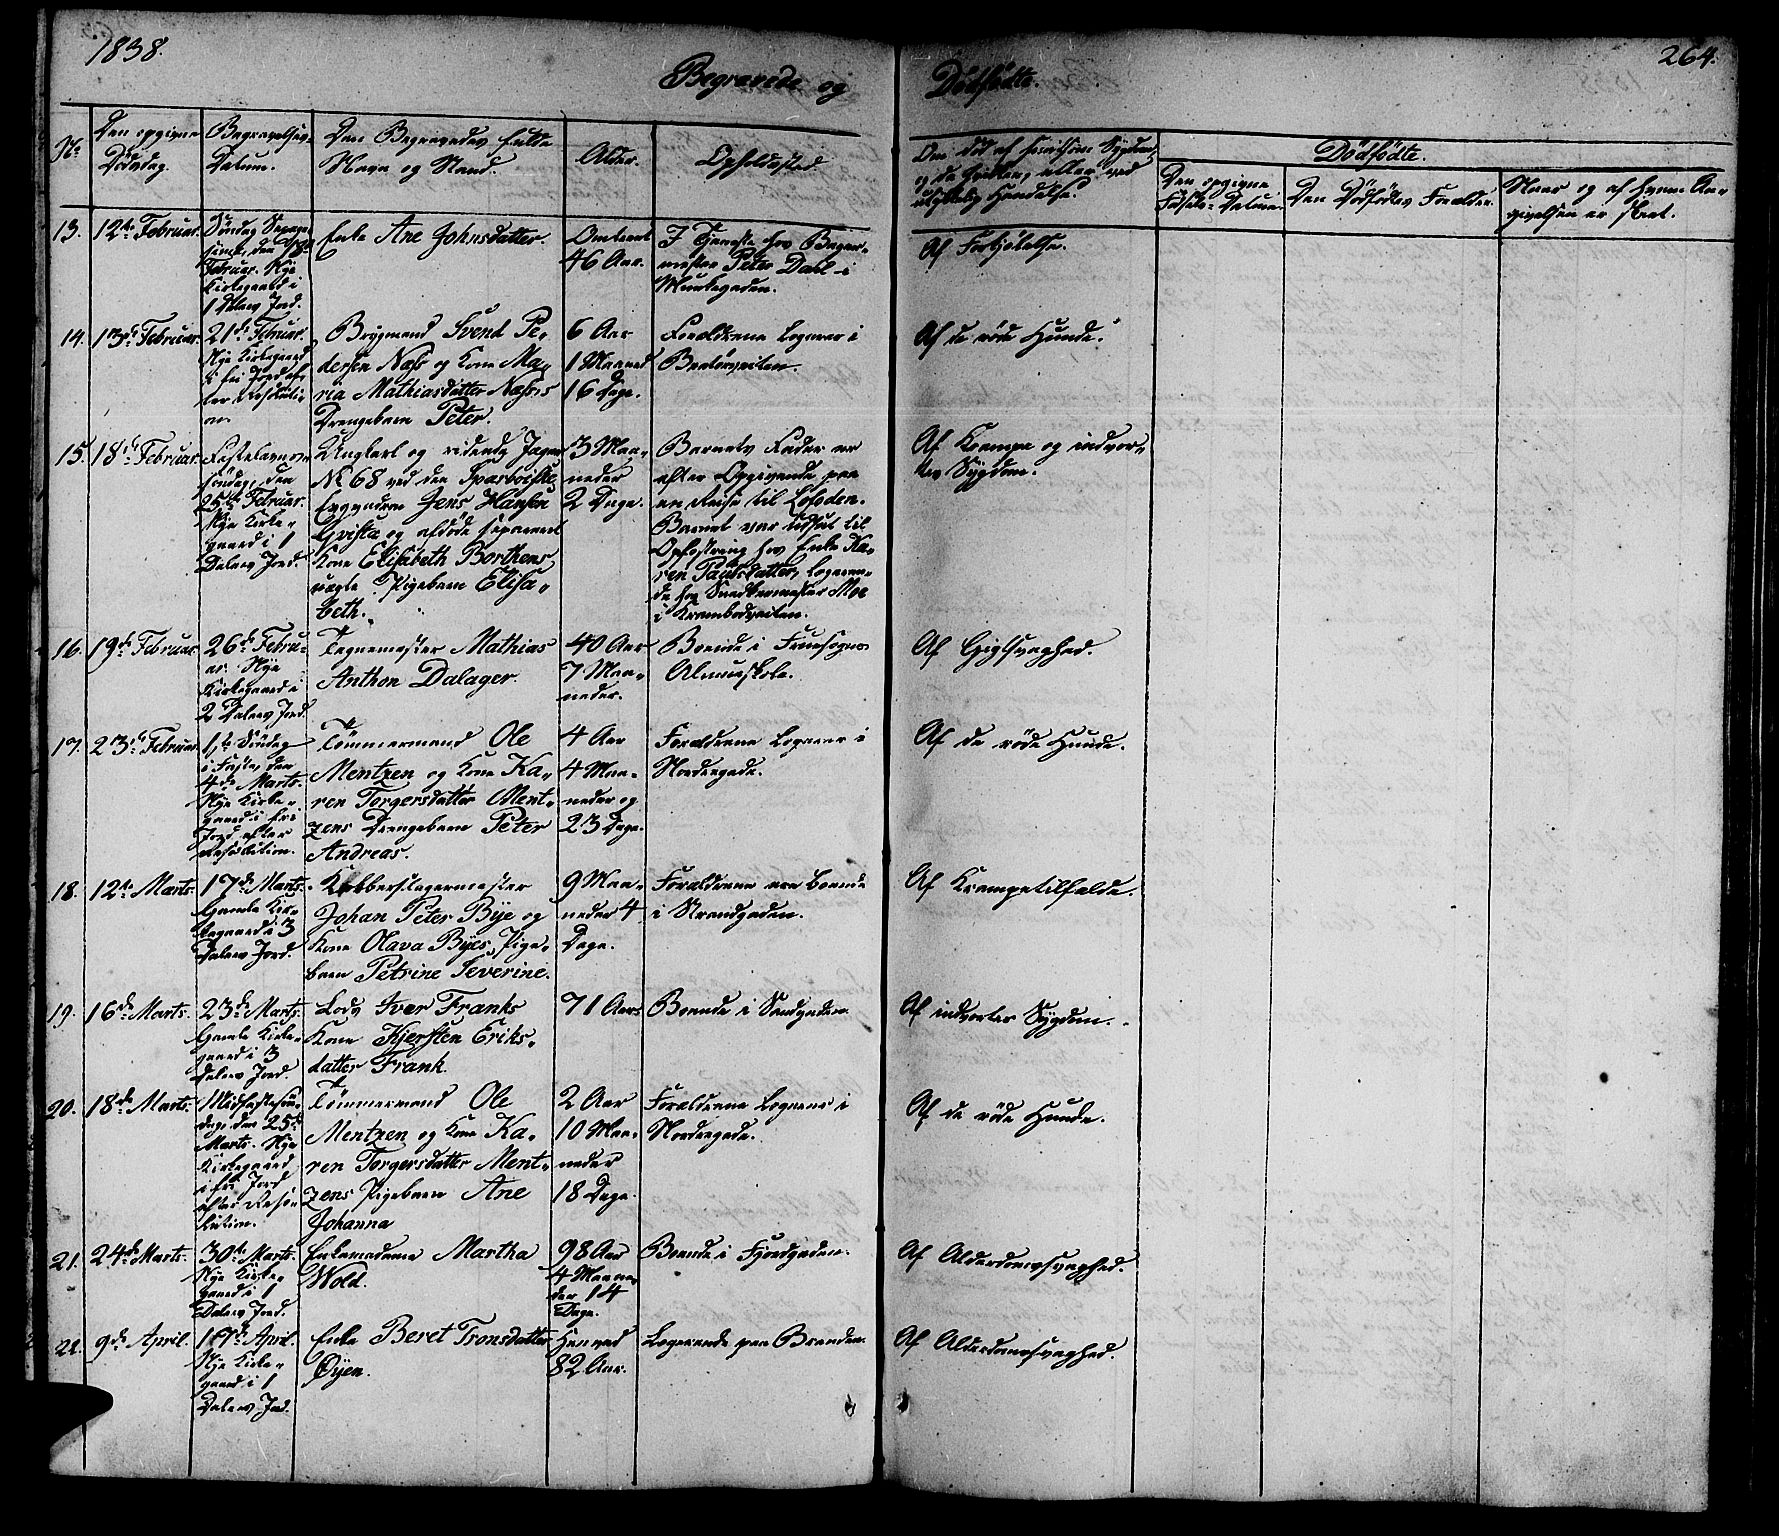 1838.
264.
Begravede og Dödfödte.
No
Den opgivne
Dödsdag.
Begravelses
Datum.
Den Begravedes fulde
Navn og Stand.
Alder.
Opholdssted.
Om död af smitsom Sygdom,
og da hvilken, eller ved
ulykkelig Hendelse.
Dödfödte.
Den opgivne
Födsels-Datum.
Den Dödfödtes Forældre.
Naar og af hvem An-
givelsen er skeet.
13.
12te Februar.
Söndag Sexage-
sima, den
Februar. Nye
Kirkegaard i
1 Dalers Jord.
Enke Ane Johnsdatter.
Omtrent
46 Aar.
I Tjeneste hos Bager-
mester Peter Dahl i
Munkegaden.
Af Forkjölelse.
14.
13de Februar.
21de Februar.
Nye Kirkegaard
i fri Jord ef-
ter Resoluti-
on.
Brygmand Svend Pe-
dersen Næss og Kone Ma-
ria Mathiasdatter Næss's
Drengebarn Peter.
6 Aar
1 Maaned
16 Dage.
Forældrene Logerer i
Bratörveiten.
Af de röde Hunde.
15.
18de Februar.
Fastelavns-
söndag, den
25de Februar.
Nye Kirke-
gaard i 1
Dalers Jord.
Ungkarl og ridende Jæger
No 68 ved den Sparboiske
Esqvadron Jens Hansen
Qvistad og afdöde separeret
Kone Elisabeth Borthens
uægte Pigebarn Elisa-
beth.
3 Maa-
neder
2 Dage.
Barnets Fader er
efter Opgivende paa
en Reise til Lofoden.
Barnet var udsat til
Opfostring hos Enke Ka-
ren Paulsdatter, Logeren-
de hos Snedkermester Moe
i Krambodveiten.
Af Krampe og indvor-
tes Sygdom.
16.
19de Februar.
26de Febru-
ar. Nye
Kirkegaard i
2 Dalers Jord.
Tegnemester Mathias
Anthon Dalager.
40 Aar
7 Maa-
neder.
Boende i Fruesogns
Almueskole.
Af Gigtsvaghed.
17.
23de Februar.
1ste Söndag
i Faste, den
4de Marts.
Nye Kirke-
gaard i fri
Jord efter
Resolution.
Tömmermand Ole
Mentzen og Kone Ka-
ren Torgersdatter Ment-
zens Drengebarn Peter
Andreas.
4 Aar
4 Maa-
neder og
23 Dage.
Forældrene Logerer i
Nordregade.
Af de röde Hunde.
18.
12te Marts.
17de Marts.
Gamle Kir-
kegaard i 3
Dalers Jord.
Kobberslagermester
Johan Peter Bÿe og
Kone Olava Bÿes Pige-
barn Petrine Severine.
9 Maa-
neder 4
Dage.
Forældrene ere boende
i Strandgaden.
Af Krampetilfælde.
19.
16de Marts.
23de Marts.
Gamle Kirke-
gaard i 3
Dalers Jord.
Lods Iver Franks
Kone Kjersten Eriks-
datter Frank.
71 Aar
Boende i Sandgaden.
Af indvortes Sygdom.
20.
18de Marts.
Midfastesön-
dag, den 25de
Marts. Nye
Kirkegaard
i fri Jord
efter Reso-
lution.
Tömmermand Ole
Mentzen og Kone Ka-
ren Torgersdatter Ment-
zens Pigebarn Ane
Johanna
2 Aar
10 Maa-
neder
18 Dage.
Forældrene Logerer i
Nordregade.
Af de röde Hunde.
21.
24de Marts.
30te Marts.
Nye Kirke-
gaard i 1
Dalers Jord.
Enkemadame Martha
Wold.
98 Aar
4 Maane-
der 14
Dage.
Boende i Fjordgaden.
Af Alderdomssvaghed.
22.
9de April.
17de April.
Nye Kirke-
gaard i 1
Dalers Jord.
Enke Beret Tronsdatter
Öyen.
Henved
82 Aar.
Logerende paa Branden.
Af Alderdomssvaghed.